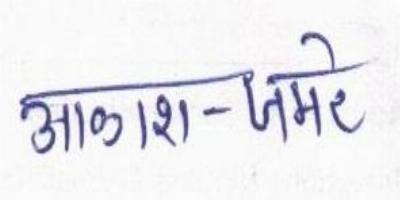 आकाश - जमरे